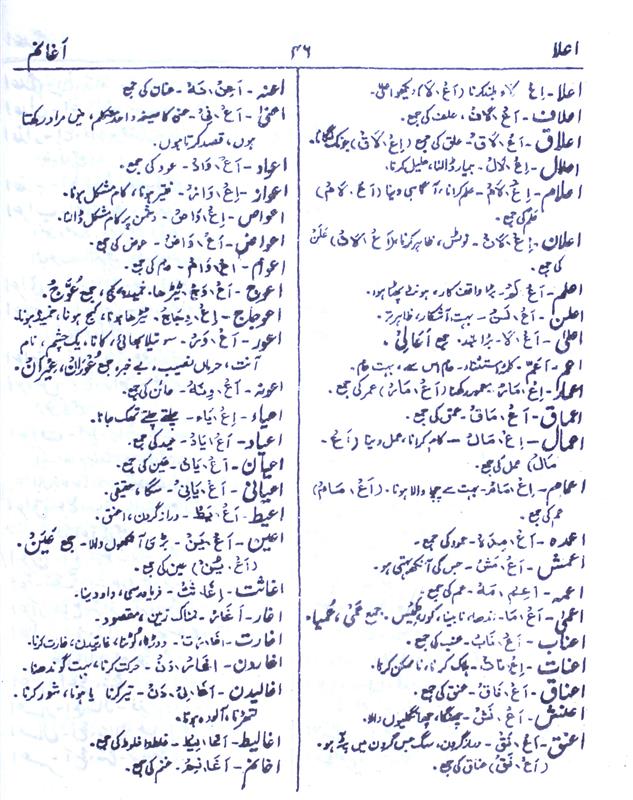 اعلا
۴۶
آغالم
اعلا - اِعْ لاء بلند کرنا (اَعْ، لَا) دیکھو اعلیٰ۔
اعلاف - اَعْ، لَافْ، علف کی جمع۔
اعلاق - اَعْ، لَاقْ - علق کی جمع (اِعْ، لَاقْ) جونک لگانا۔
اعلال - اِعْ، لَالْ - بیمار ڈالنا، علیل کرنا۔
اعلام - اِعْ، لَامْ - علم کرانا، آگاہی دینا (اَعْ، لَامْ)
علم کی جمع۔
اعلان - اِعْ، لَانْ - نوٹس، ظاہر کرنا (اَعْ، لَانْ) عَلَنْ
کی جمع۔
اعلم - اَعْ، لَمْ - بڑا واقف کار، ہونٹ پھٹا ہوا۔
اعلن - اَعْ، لَنْ - بہت آشکار، ظاہر تر۔
اعلیٰ - اَعْ، لَا - بڑا بلند۔ جمع اَعَالِیْ۔
اعم - اَعَمّ - بہت عام۔
اعمار - اِعْ، مَارْ - رکھنا (اَعْ، مَارْ) عمر کی جمع۔
اعماق - اَعْ، مَاقْ - عمق کی جمع۔
اعمال - اِعْ، مَالْ - کام کرانا، عمل دینا (اَعْ -
مَالْ) عمل کی جمع۔
اعمام - اِعْ، مَامْ - بہت سے چچا والا ہونا۔ (اَعْ، مَامْ)
عم کی جمع۔
اعمدہ - اَعْ، مِدَہْ - عمود کی جمع۔
اعمش - اَعْ، مَشْ - جس کی آنکھ بہتی ہو۔
اعمہ - اَعِمْ، مَہْ - عم کی جمع۔
اعمیٰ - اَعْ، مَا - اندھا، نابینا، کور جمع عُمْیْ، عُمْیَاء
اعناب - اَعْ، نَابْ - عنب کی جمع۔
اعنات - اِعْ، نَاتْ - ہلاک کرنا، ناممکن کرنا۔
اعناق - اَعْ، نَاقْ - عنق کی جمع۔
اعنش - اَعْ، نَشْ - چھنگا، چھ انگلیوں والا۔
اعنق - اَعْ، نَقْ - دراز گردن، سگ جس گردن میں پٹہ ہو۔
(اَعْ، نُقْ) عناق کی جمع۔
اعنہ - اَعِنْ، نَہْ - عنان کی جمع۔
اعنی - اَعْ، نِیْ - عنی کا صیغہ واحد متکلم، میں مراد رکھتا
ہوں، قصد کرتا ہوں۔
اعواد - اَعْ، وَادْ - عود کی جمع۔
اعواز - اِعْ، وَازْ - فقیر ہونا، کام مشکل ہونا۔
اعواص - اِعْ، وَاصْ - دشمن پر کام مشکل ڈالنا۔
اعواض - اَعْ، وَاضْ - عوض کی جمع۔
اعوام - اَعْ، وَامْ - عام کی جمع۔
اعوج - اَعْ، وَجْ - ٹیڑھا، خمیدہ، کج، جمع عُوْجْ۔
اعوجاج - اِعْ، وِجَاجْ - ٹیڑھا ہونا، کج ہونا، خمیدہ ہونا۔
اعور - اَعْ، وَرْ - سوتیلا بھائی، کانا، یک چشم، نام
آنت، حرماں نصیب، بے خبر، جمع عُوْرَانْ، عِیْرَانْ۔
اعونہ - اَعْ، وِنَہْ - عانن کی جمع۔
اعیاء - اِعْ، یَاء - چلتے چلتے تھک جانا۔
اعیاد - اَعْ، یَادْ - عید کی جمع۔
اعیان - اَعْ، یَانْ - عین کی جمع۔
اعیانی - اَعْ، یَانِیْ - سگا، حقیقی۔
اعیط - اَعْ، یَطْ - دراز گردن، احمق۔
اعین - اَعْ، یَنْ - بڑی آنکھوں والا - جمع عَیْنْ۔
(اَعْ، یُنْ) عین کی جمع۔
اغاثت - اِغَا، ثَتْ - فریاد رسی، داد دینا۔
اغار - اَغَارْ - نمناک زمین، مقصود۔
اغارت - اِغَا، رَتْ - دوڑنا، لوٹنا، غارت کرنا۔
اغارون - اَغَا، رَ، دَنْ - حرکت کرنا، بہت گوندھنا۔
اغالیدن - اَغَا، لِیْ، دَنْ - تیر کرنا یا ہونا، شور کرنا،
لتھڑنا، آلودہ ہونا۔
اغالیط - اَغَا، لِیْطْ - غلط غلوط کی جمع۔
اغانم - اَغَا، نِمْ - غنم کی جمع۔